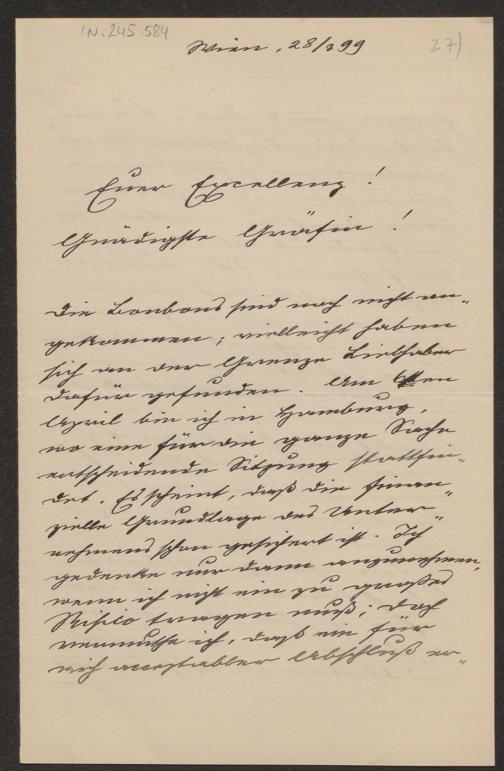 IN. 245.584
27)
Wien, 28/3 99
Euer Excellenz!
Gnädigste Gräfin!
Die Bonbons sind noch nicht an„
gekommen; vielleicht haben
sich an der Grenze Liebhaber
dafür gefunden. Am ten
April bin ich in Hamburg,
wo eine für die ganze Sache
entscheidende Sitzung stattfin„
det. Es scheint, daß die finan„
zielle Grundlage des Unter„
nehmens schon gesichert ist. Ich
gedenke nur dann anzunehmen,
wenn ich nicht ein zu großes
Risico tragen muß; doch
vermuthe ich, daß ein für
mich acceptabler Abschluß er„